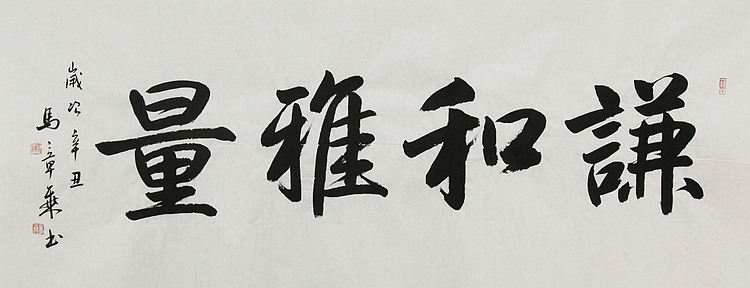 謙和雅量
歲次辛丑
馬章乘书